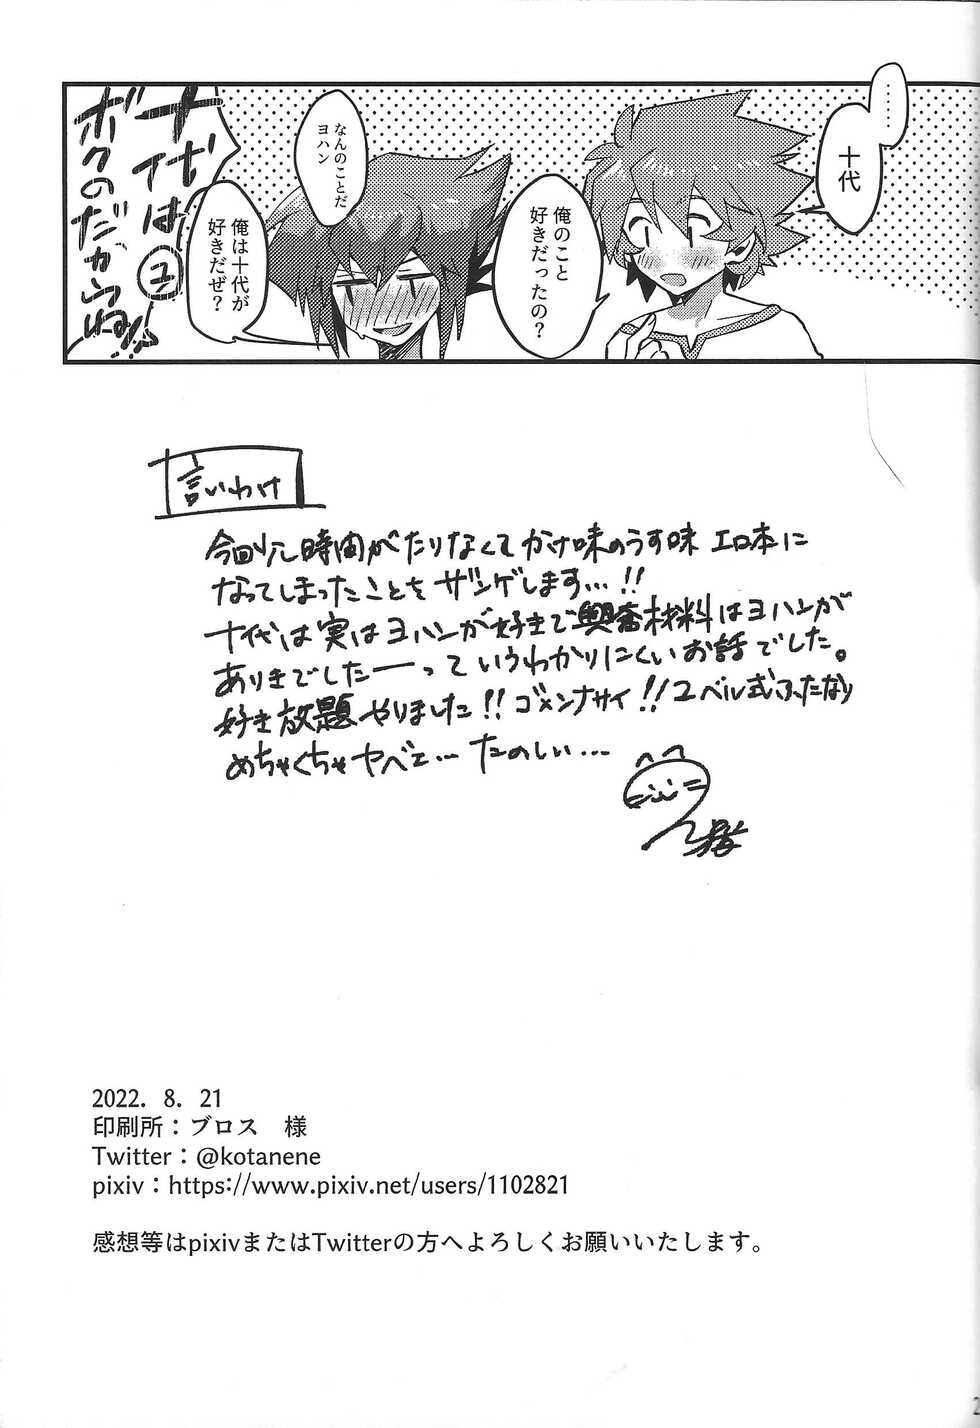 ……
十代
俺のこと
好きだったの?
なんのことだ
ヨハン
俺は十代が
好きだぜ?
十代は
ボクのだからね!!
ユ
言いわけ
今回少し時間がたりなくてかけ味のうす味エロ本に
なってしまったことをザンゲします…!!
十代は実はヨハンが好きで興奮材料はヨハンが
ありきでしたーーっていうわかりにくいお話でした。
好き放題やりました!!ゴメンナサイ!!ユベル式ふたなり
めちゃくちゃヤベェ…たのしい…
2022. 8. 21
印刷所:ブロス 様
Twitter:@kotanene
pixiv:https://www.pixiv.net/users/1102821
感想等はpixivまたはTwitterの方へよろしくお願いいたします。